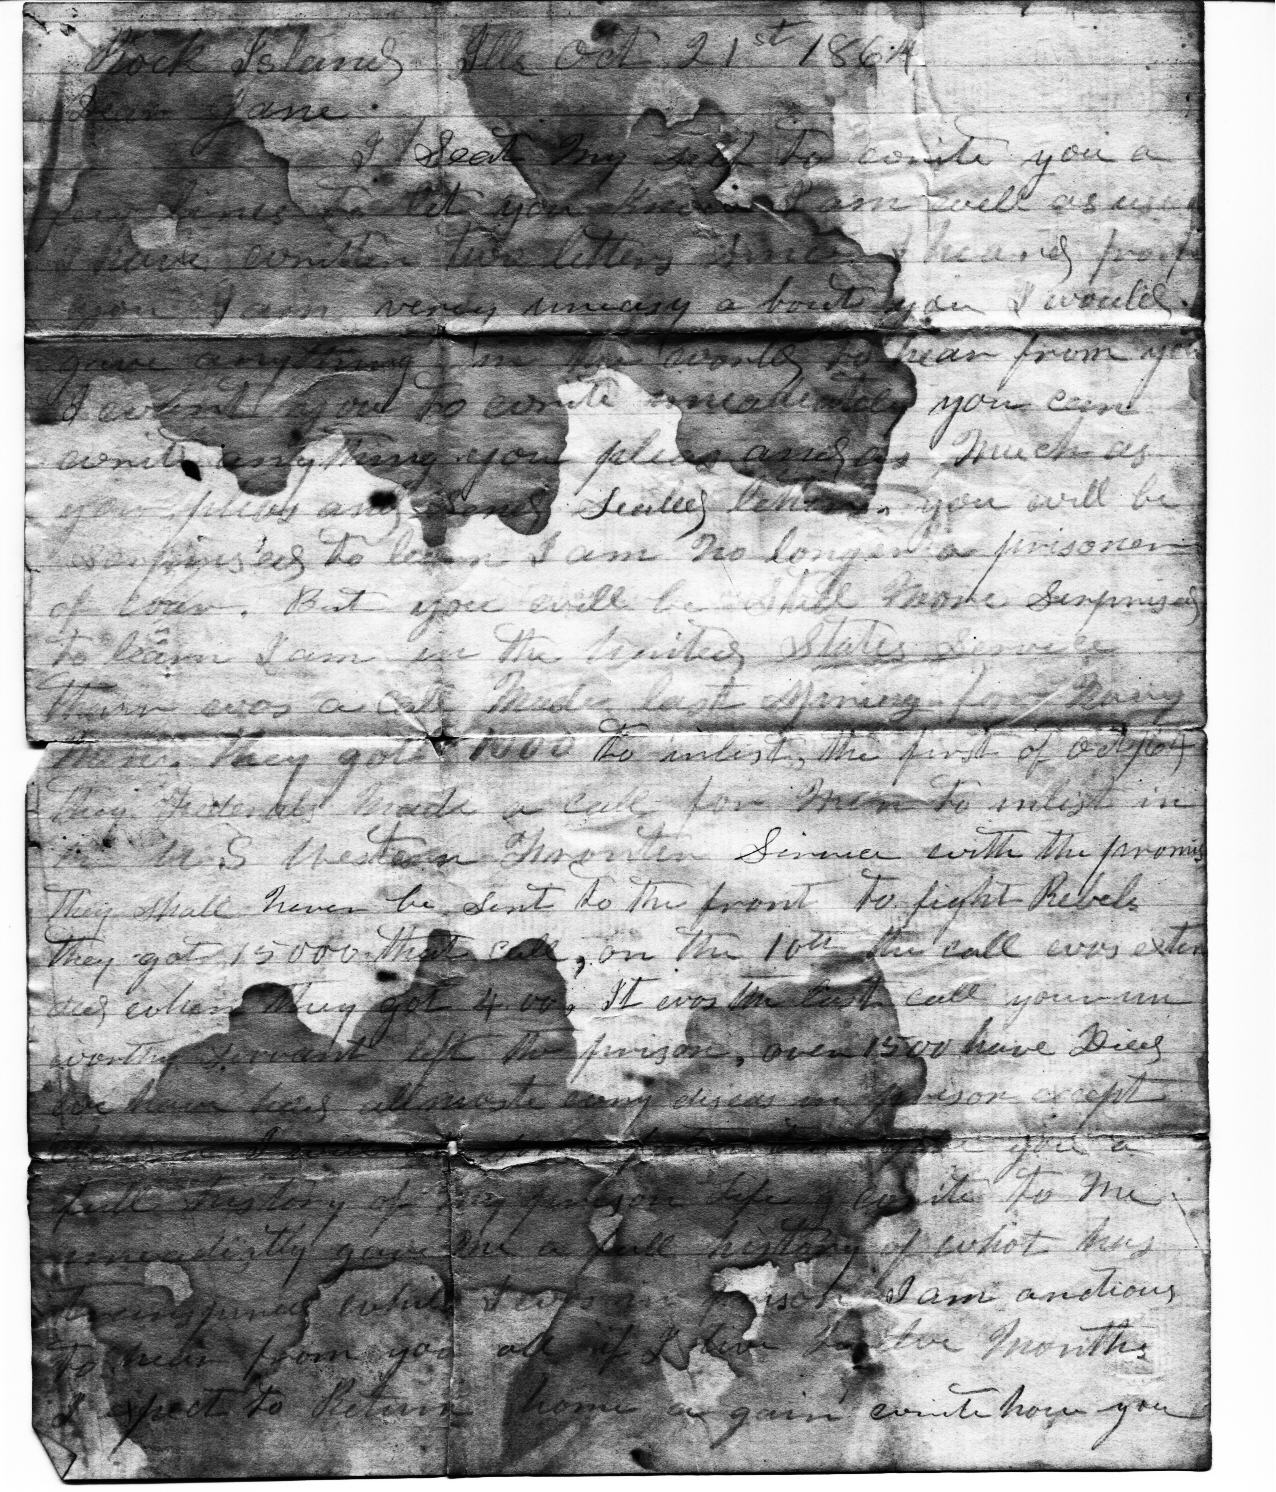 Rock Island Ills Oct 21st 1864
Dear Jane
I Seat My self to write you a
few lines to let you know I am well as usu
I have written two letters since I heard from
you I am verry uneasy a bout you I would
gave anything in the world to hear from you
I want you to write imeadiately you can
write anything you pleas and as Much as
you pleas and send sealed letters. you will be
serpris'ed to learn I am No longer a prisoner
of war. But you will be still More Serprised
to learn I am in the United States Service
thair was a call Made last Spring for Navy
Men. they got 1000 to inlist, the first of Oct
they Federals Made a call for Men to inlist in
the U S Western Frontier Service with the promis
they shall Never be sent to the front to fight Rebels
they got 15000 that call, on the 10th the call was exten
ded when they got 4 00, It was the last call your un
worthy servant left the prison, over 1500 have Died
we have had allmoste evry diseas in prison except
I you a
full history of my prison life write to Me
imeadietly gave me a full history of what has
transpired while I was in prison I am anctious
to hear from you all if I live twelve Months
I expect to Return home a gain write how you